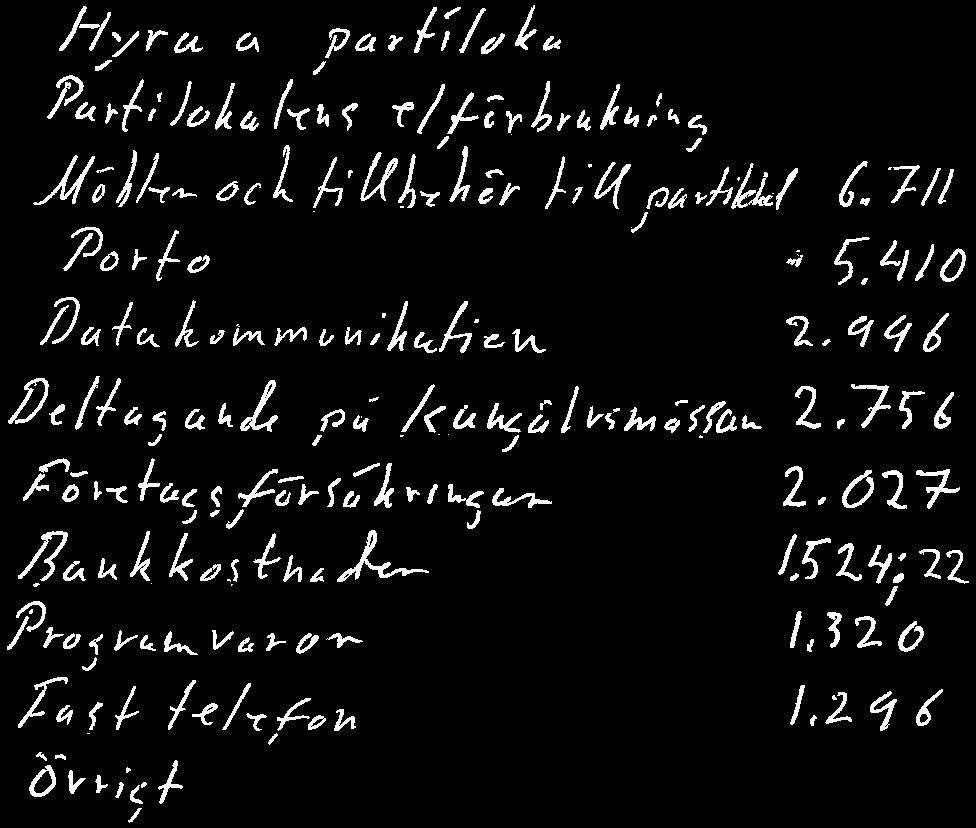 Hyra a partiloka
Partilokalens elförbrukning
Möbler och tillbehör till partilokal 6.711
Porto 5.410
Datakommunikation 2.996
Deltagande på Kungälvsmässan 2.756
Företagsförsäkringar 2.027
Bankkostnader 1.524;22
Programvaror 1.320
Fast telefon 1.296
Övrigt